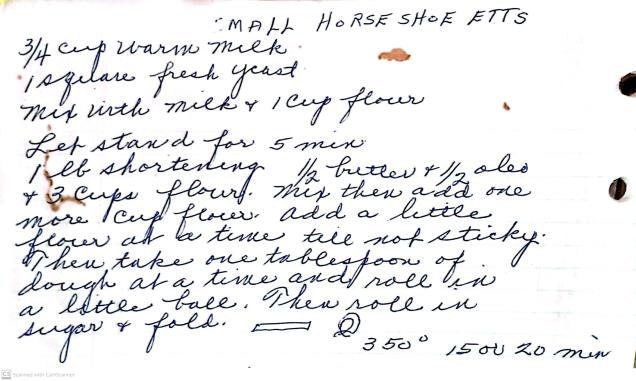 SMALL HORSE SHOE ETTS
3/4 cup warm milk
1 square fresh yeast
Mix with milk & 1 cup flour
Let stand for 5 min
1 lb shortening 1/2 butter & 1/2 oleo
& 3 cups flour. Mix then add one
more cup flour. Add a little
flour at a time till not sticky.
Then take one tablespoon of
dough at a time and roll in
a little ball. Then roll in
sugar & fold.
350° 15 or 20 min
CS Scanned with CamScanner